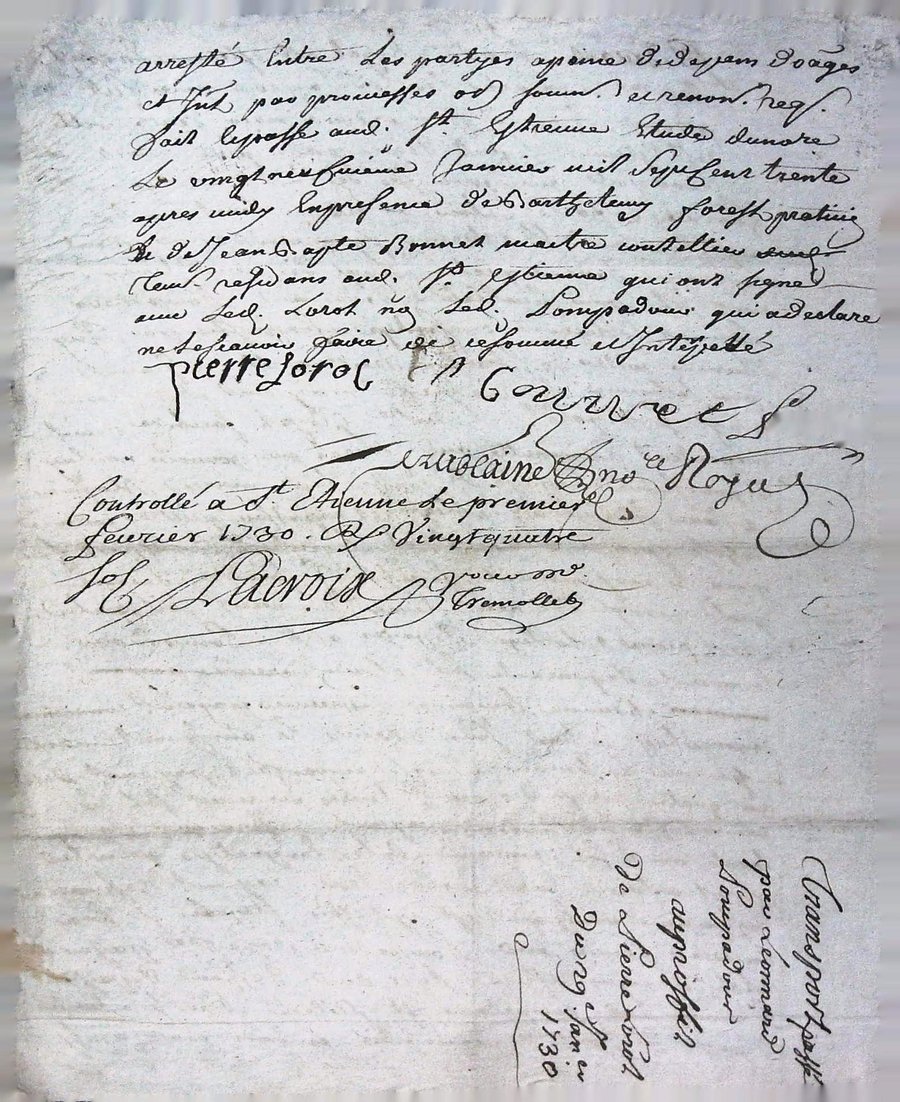 arresté Entre Les partyes apeine de depens do͞ages
et Int par promesses ob soum. et renon. req.
fait et passé aud. St. Estienne Etude du nore
Le vingt neufvième Janvier mil sept cent trente
apres midy En presence de Barthelemy forest praticien
& de Jean Bapte Bonnet maitre coutellier
resid ans aud. St Estienne qui ont signé
avec led. Lorot led. Pompadour qui a declaré
ne le scavoir faire de ce sommé et Interpellé
pierre Lorot
Bonnet
no re Royal
Controllé a St Etienne Le premier
fevrier 1730. Rs Vingt quatre
sols Lacroix
Tremollet
Transport passé
par Léonnard
Pompadour
au proffit
De Pierre Lorot
Du 29e Janer
1730